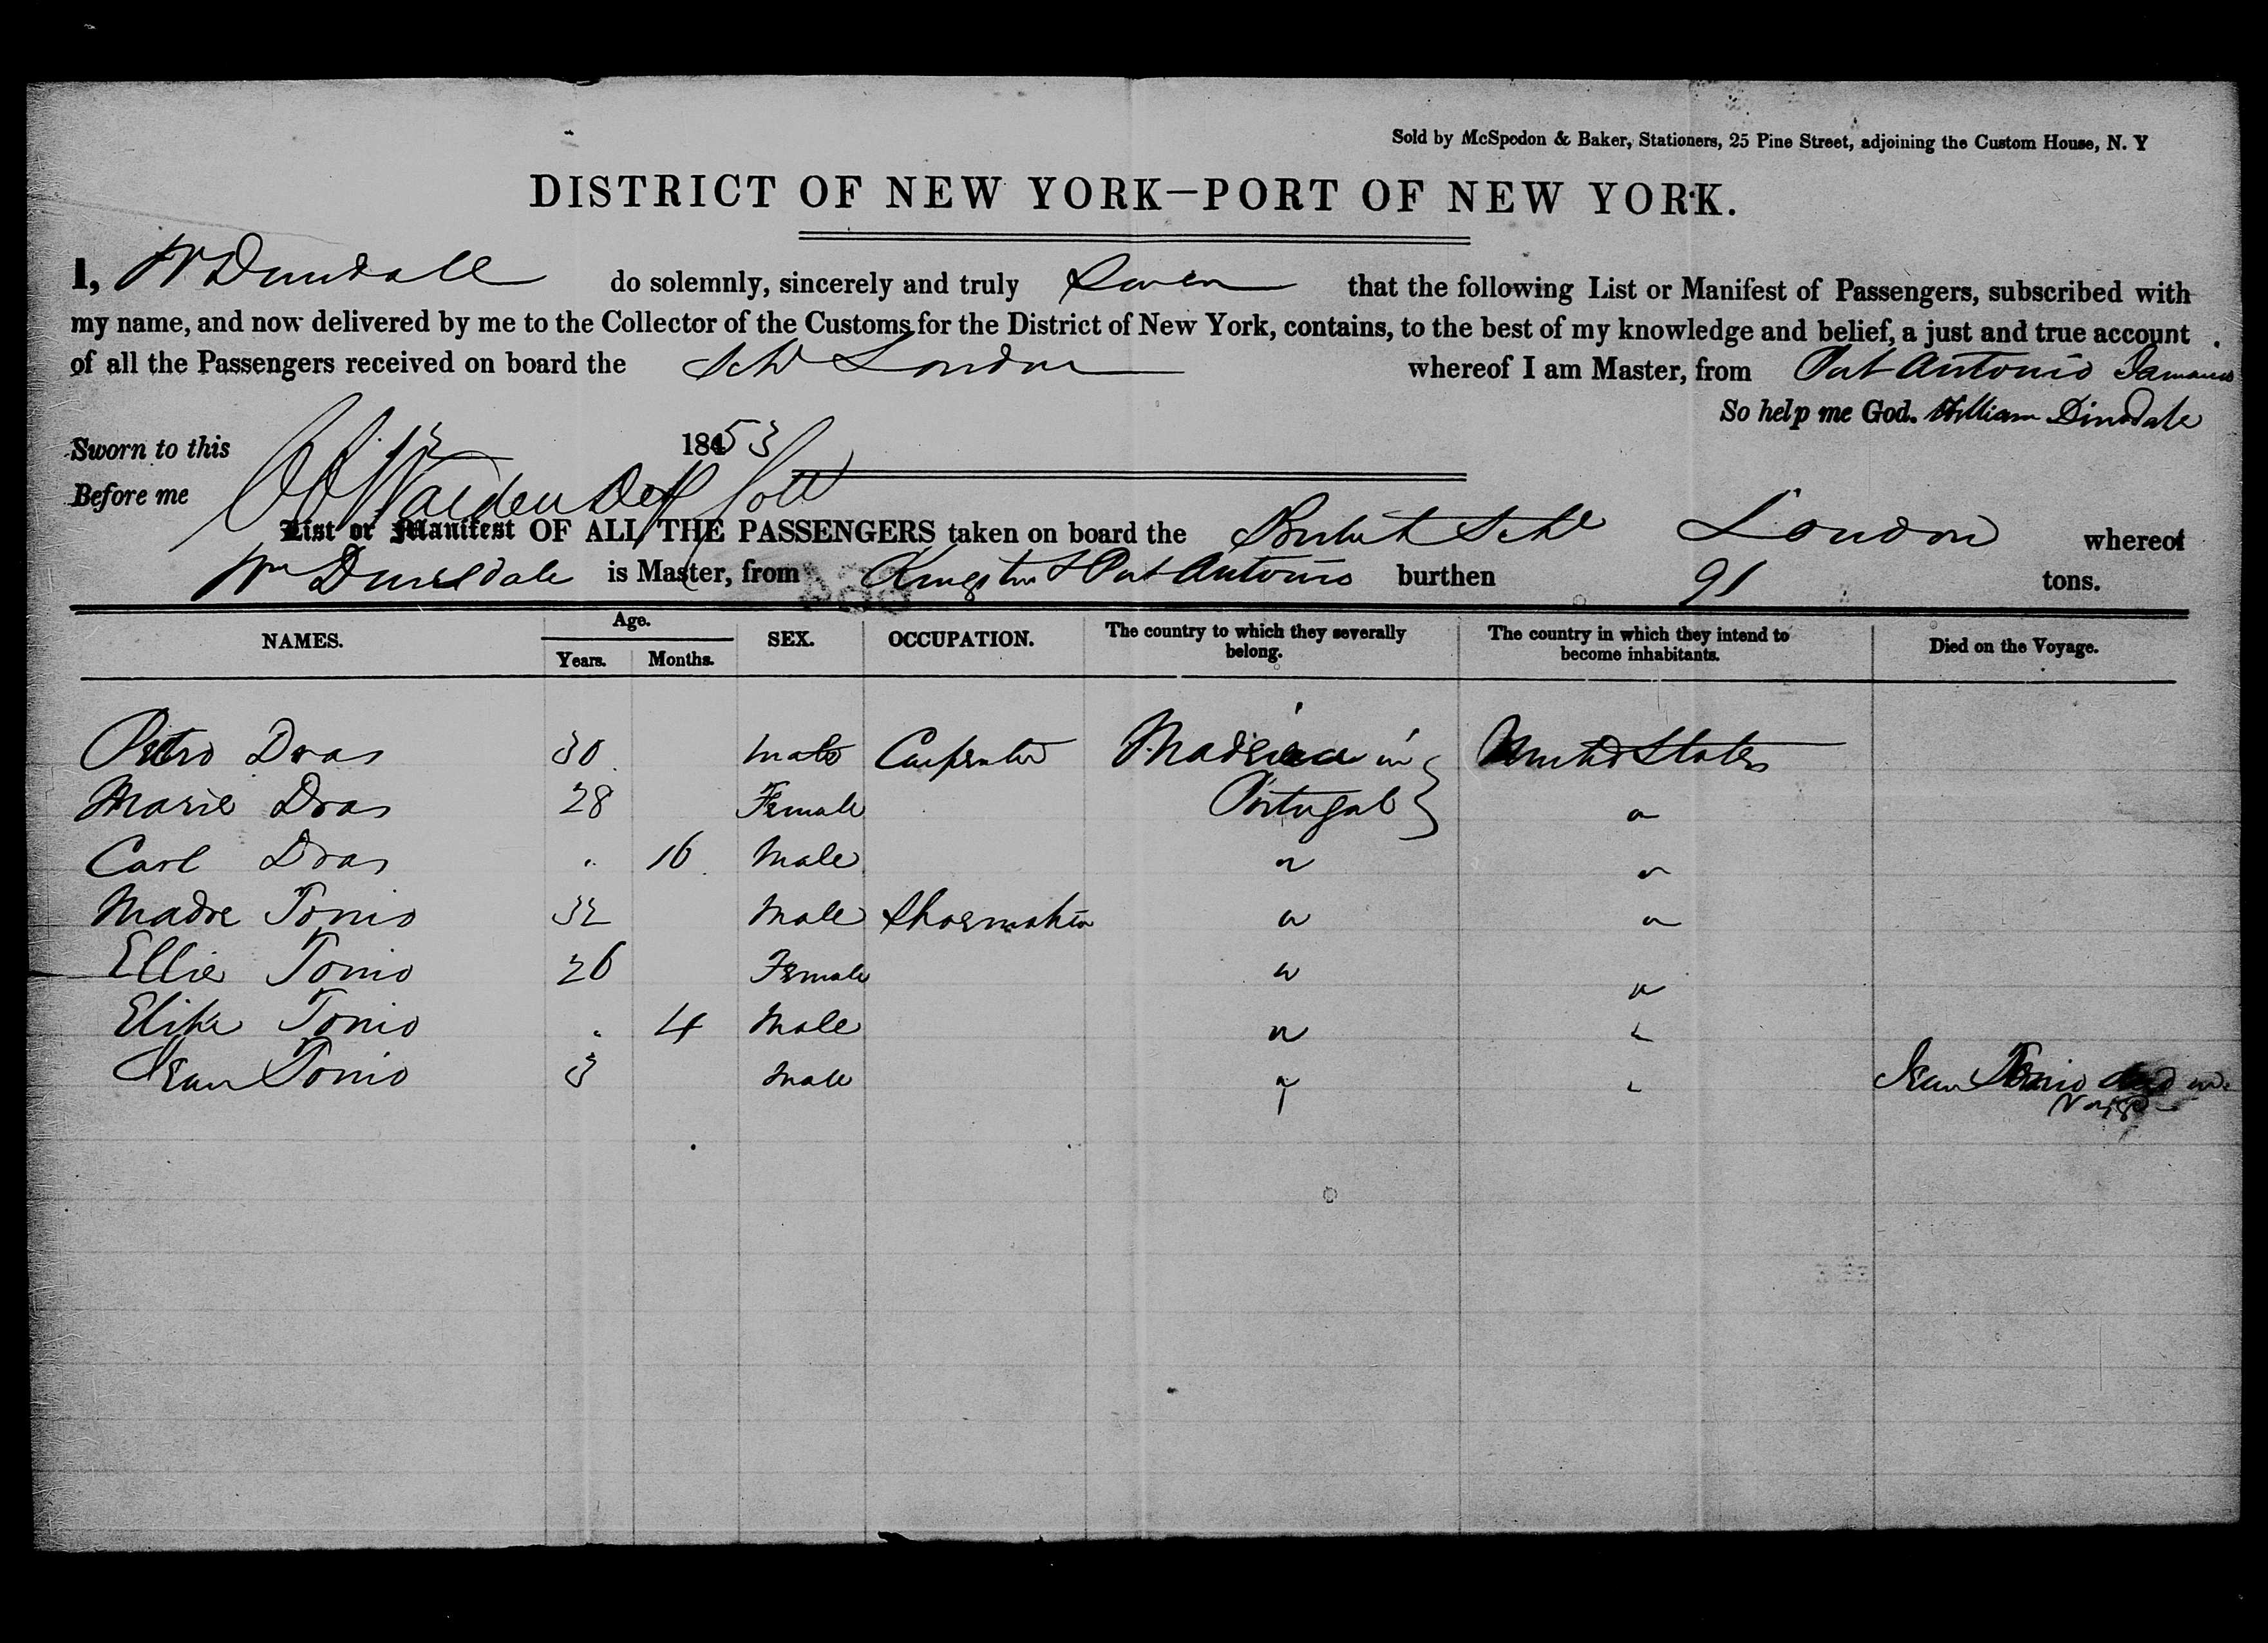 Sold by McSpedon & Baker, Stationers, 25 Pine Street, adjoining the Custom House, N. Y
DISTRICT OF NEW YORK—PORT OF NEW YORK.
I, W Dinsdale do solemnly, sincerely and truly Swear that the following List or Manifest of Passengers, subscribed with
my name, and now delivered by me to the Collector of the Customs for the District of New York, contains, to the best of my knowledge and belief, a just and true account
of all the Passengers received on board the Schr London whereof I am Master, from Port Antonio Jamaica
So help me God. William Dinsdale
Sworn to this 1853
Before me
List or Manifest OF ALL THE PASSENGERS taken on board the British Schr London whereof
Wm Dinsdale is Master, from Kingston & Port Antonio burthen 91 tons.
NAMES. Age. Years. Months. SEX. OCCUPATION. The country to which they severally belong. The country in which they intend to become inhabitants. Died on the Voyage.
Pedro Dras 30 Male Carpenter Madeira in United States
Marie Dras 28 Female Portugal "
Carl Dras 16 Male " "
Madre Tonio 32 Male Shoemaker " "
Ellie Tonio 26 Female " "
Elike Tonio 4 Male " "
Jean Tonio 3 Male " " Jean Tonio died on
Voyage